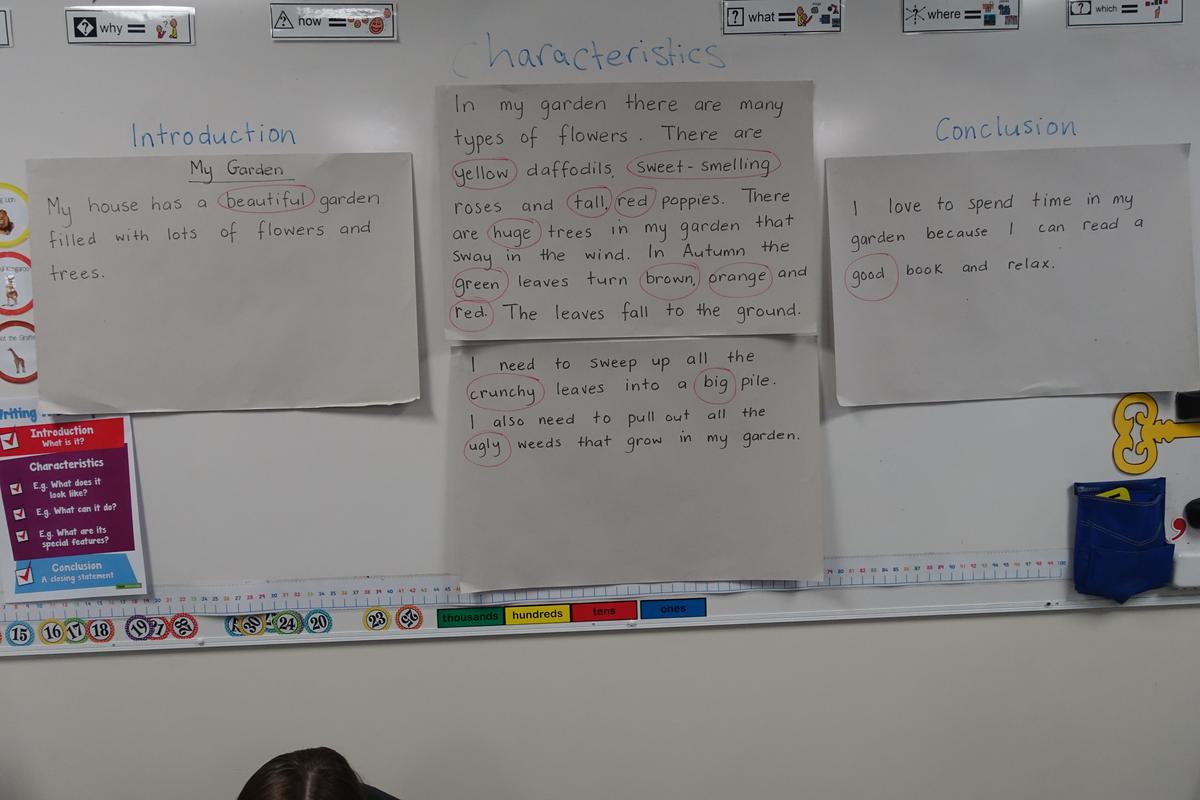 why =
how =
what =
where =
which =
Introduction
My Garden
My house has a beautiful garden
filled with lots of flowers and
trees.
Characteristics
In my garden there are many
types of flowers. There are
yellow daffodils, sweet-smelling
roses and tall, red poppies. There
are huge trees in my garden that
sway in the wind. In Autumn the
green leaves turn brown, orange and
red. The leaves fall to the ground.
I need to sweep up all the
crunchy leaves into a big pile.
I also need to pull out all the
ugly weeds that grow in my garden.
Conclusion
I love to spend time in my
garden because I can read a
good book and relax.
Writing
Introduction
What is it?
Characteristics
E.g. What does it
look like?
E.g. What can it do?
E.g. What are its
special features?
Conclusion
A closing statement
15 16 17 18 19 24 20 23
thousands hundreds tens ones